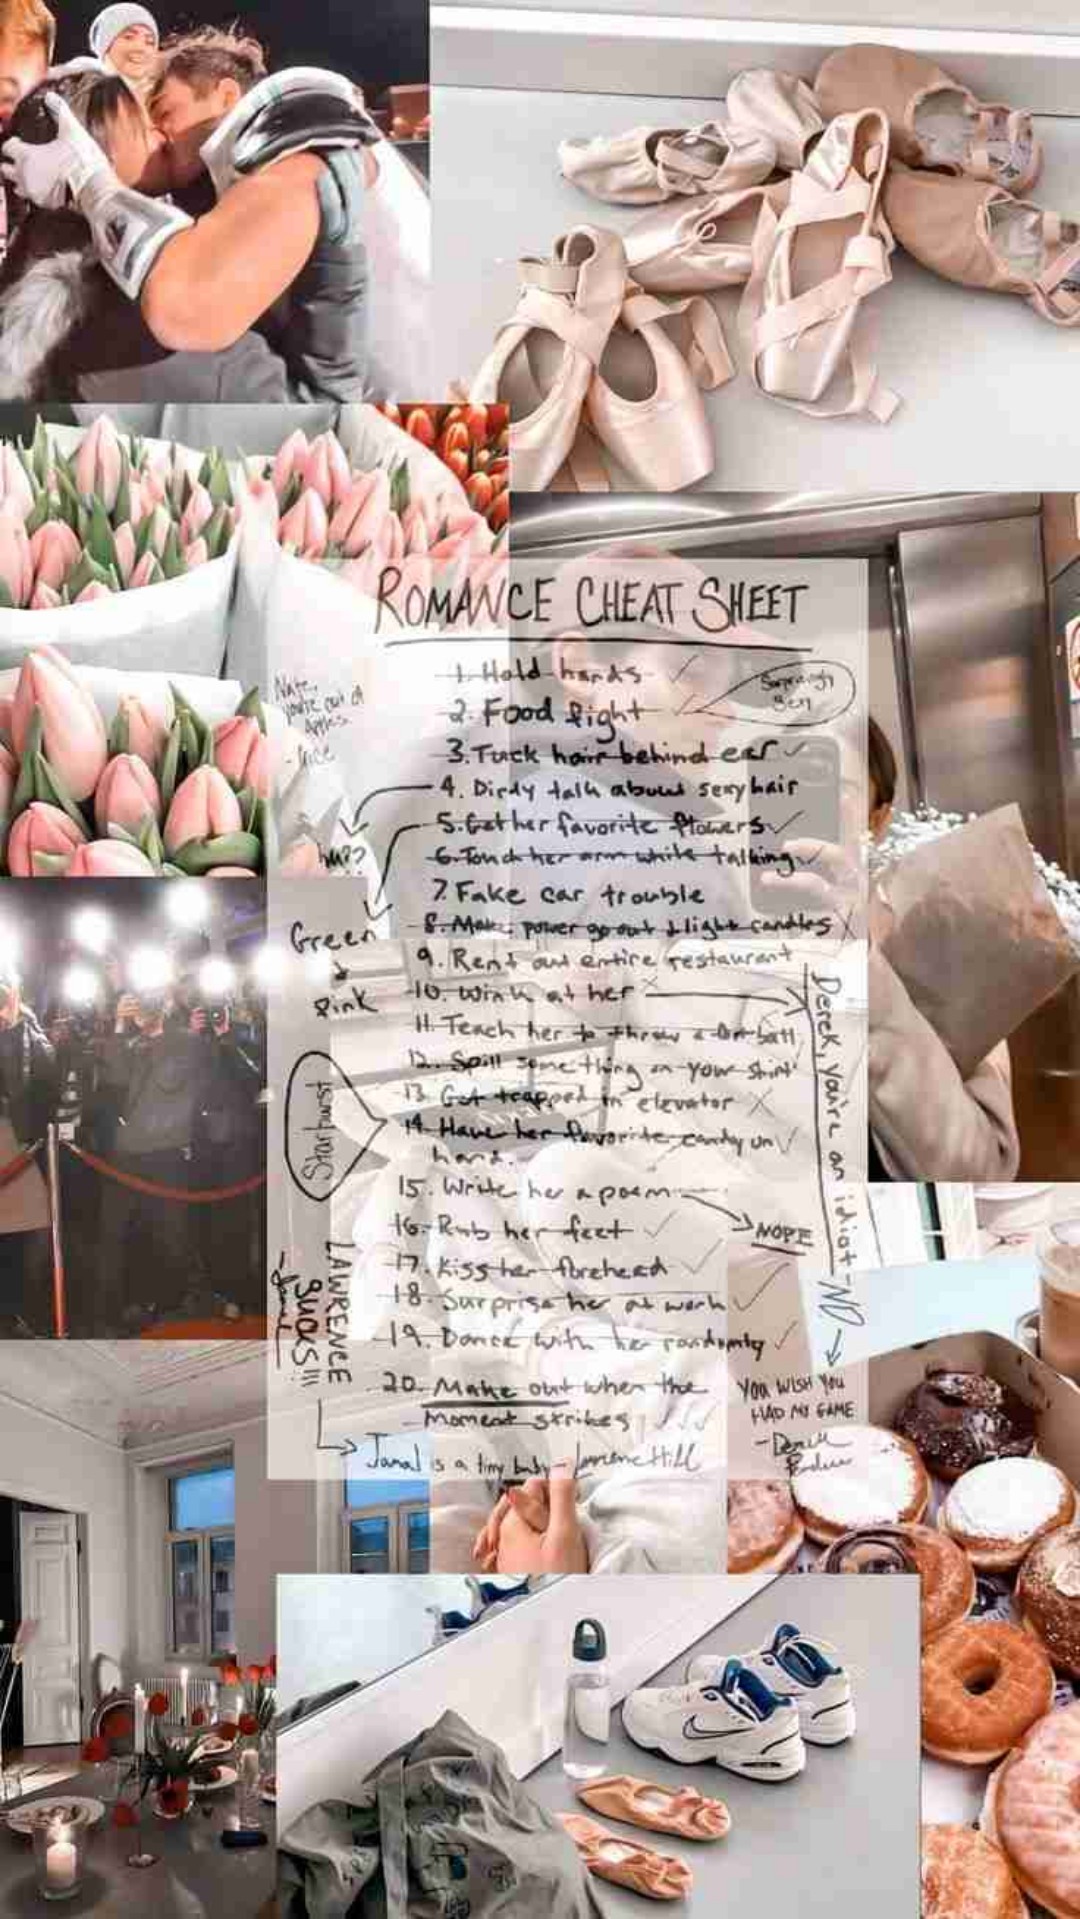 ROMANCE CHEAT SHEET
1. Hold hands ✓
Surprisingly
Sexy
2. Food fight ✓
Nate,
you're out of
Apples.
3. Tuck hair behind ear ✓
4. Dirdy talk about sexy hair
huh??
5. Get her favorite flowers ✓
6. Touch her arm while talking ✓
7. Fake car trouble
8. Make power go out & light candles X
Green
&
Pink
9. Rent out entire restaurant
10. Wink at her X
11. Teach her to throw a ball
12. Spill something on your shirt
13. Get trapped in elevator X
14. Have her favorite candy on ✓
hand.
Starburst
15. Write her a poem
NOPE
16. Rub her feet ✓
17. Kiss her forehead ✓
18. Surprise her at work ✓
19. Dance with her randomly ✓
20. Make out when the
moment strikes ✓✓✓
Derek, you're an idiot - NO
LAWRENCE
SUCKS!!!
-Jamal
YOU WISH YOU
HAD MY GAME
-Derek
Jamal is a tiny baby - Lawrence Hill